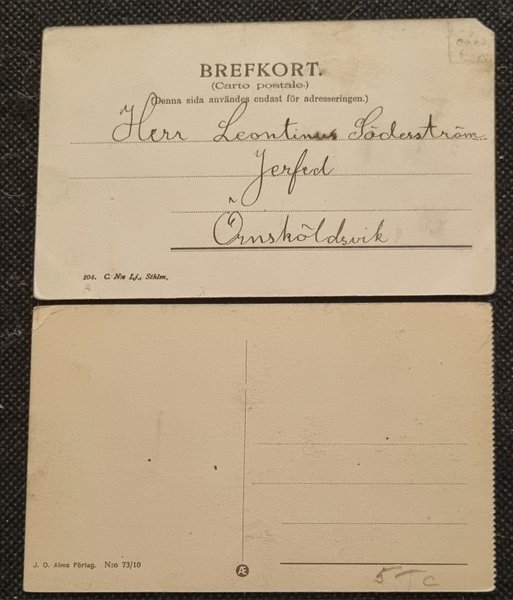 BREFKORT.
(Carte postale.)
(Denna sida användes endast för adresseringen.)
Herr Leontinus Söderström
Jerfed
Örnsköldsvik
104. C. N:s Lj., Sthlm.
J. O. Alms Förlag. N:o 73/10
Æ
5 TC